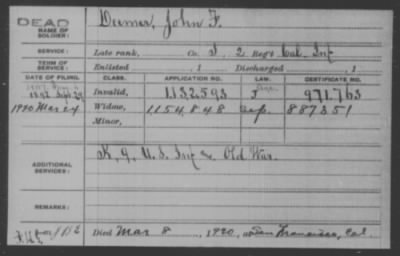 DEAD
NAME OF SOLDIER: Diemer, John F.
SERVICE: Late rank, Co. I, 2 Reg't Cal. Inf
TERM OF SERVICE: Enlisted , 1 Discharged , 1
DATE OF FILING. CLASS. APPLICATION NO. LAW. CERTIFICATE NO.
1892 Sept 29 Invalid, 1,132,593 971,763
1920 Mar 24 Widow, 1,154,848 887351
Minor,
ADDITIONAL SERVICES: K, 9, U.S. Inf Old War.
REMARKS:
Died Mar 8, 1920, at San Francisco, Cal.